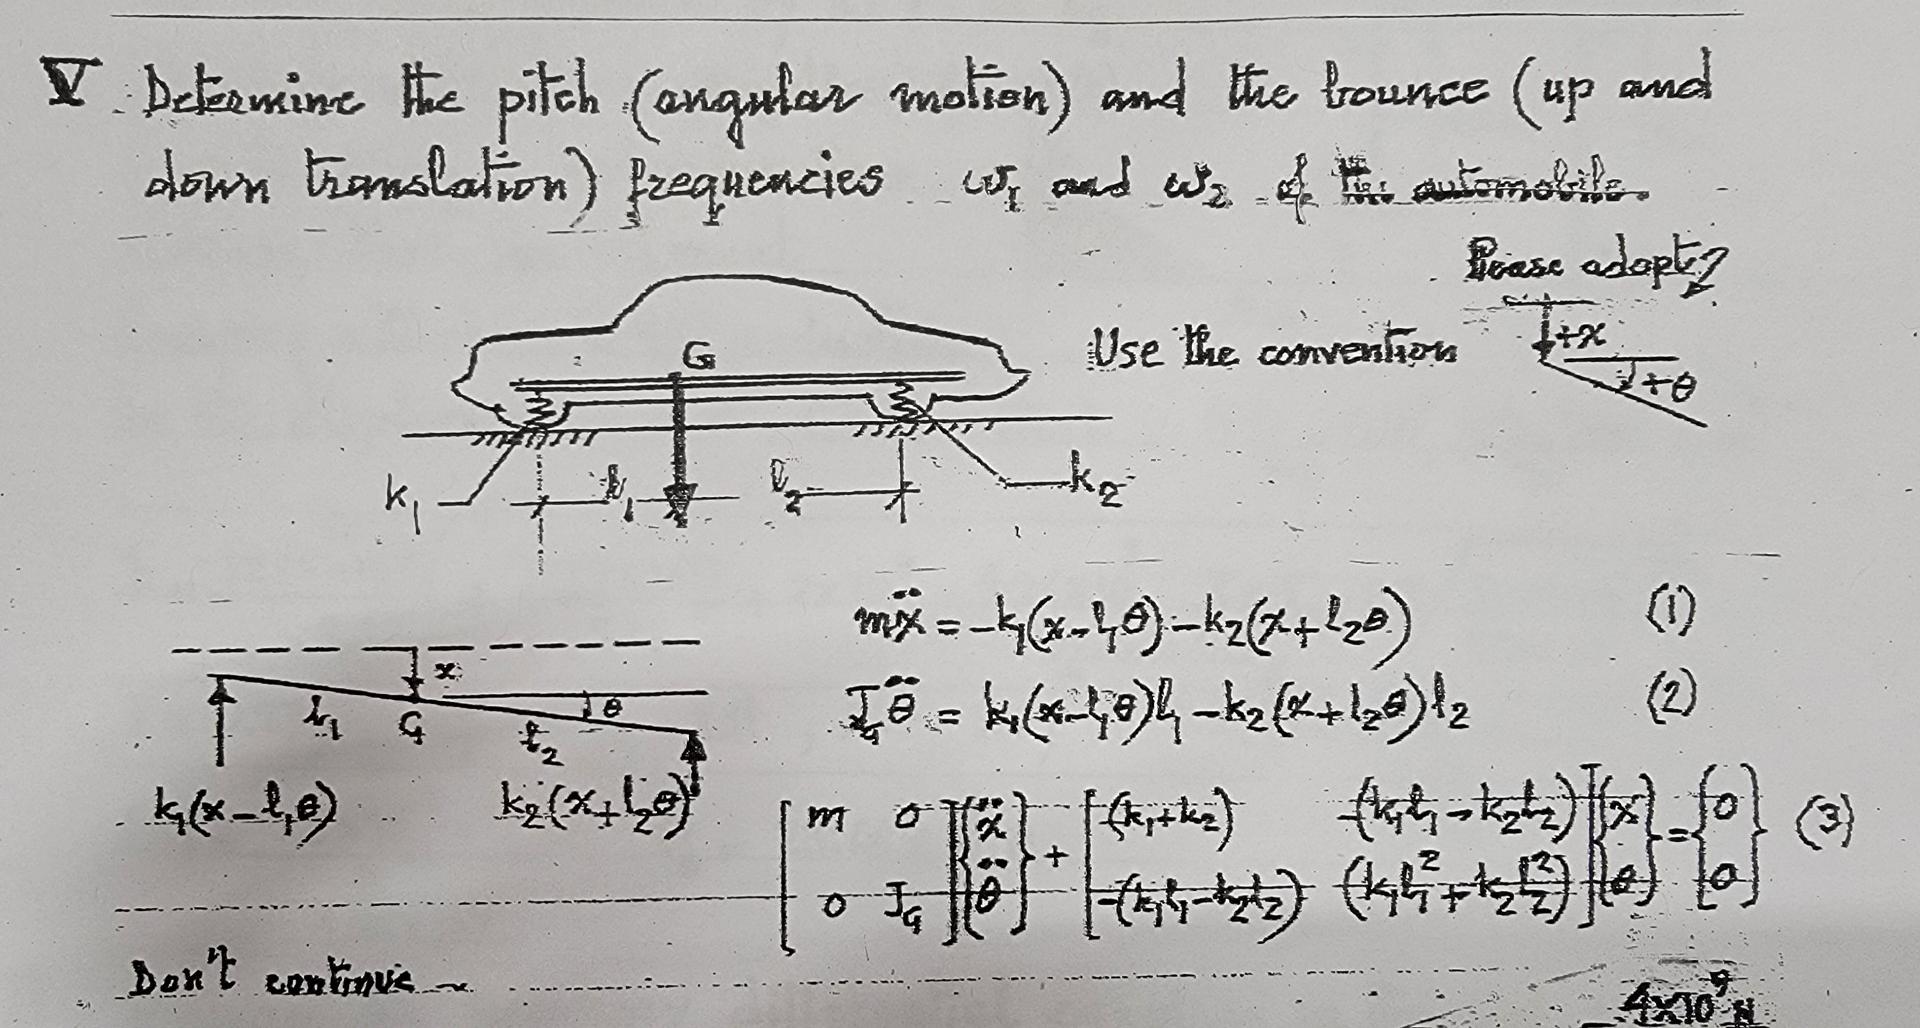 V Determine the pitch (angular motion) and the bounce (up and
down translation) frequencies ω₁ and ω₂ of the automobile.
Please adopt?
Use the convention
+x
+θ
G
k₁ l₁ l₂ k₂
mẍ = -k₁(x-l₁θ) - k₂(x+l₂θ) (1)
J_G θ̈ = k₁(x-l₁θ)l₁ - k₂(x+l₂θ)l₂ (2)
x
θ
l₁ G l₂
k₁(x-l₁θ) k₂(x+l₂θ)
[m 0; 0 J_G]{ẍ; θ̈} + [(k₁+k₂) -(k₁l₁-k₂l₂); -(k₁l₁-k₂l₂) (k₁l₁²+k₂l₂²)]{x; θ} = {0; 0} (3)
Don't continue
4x10⁹ N